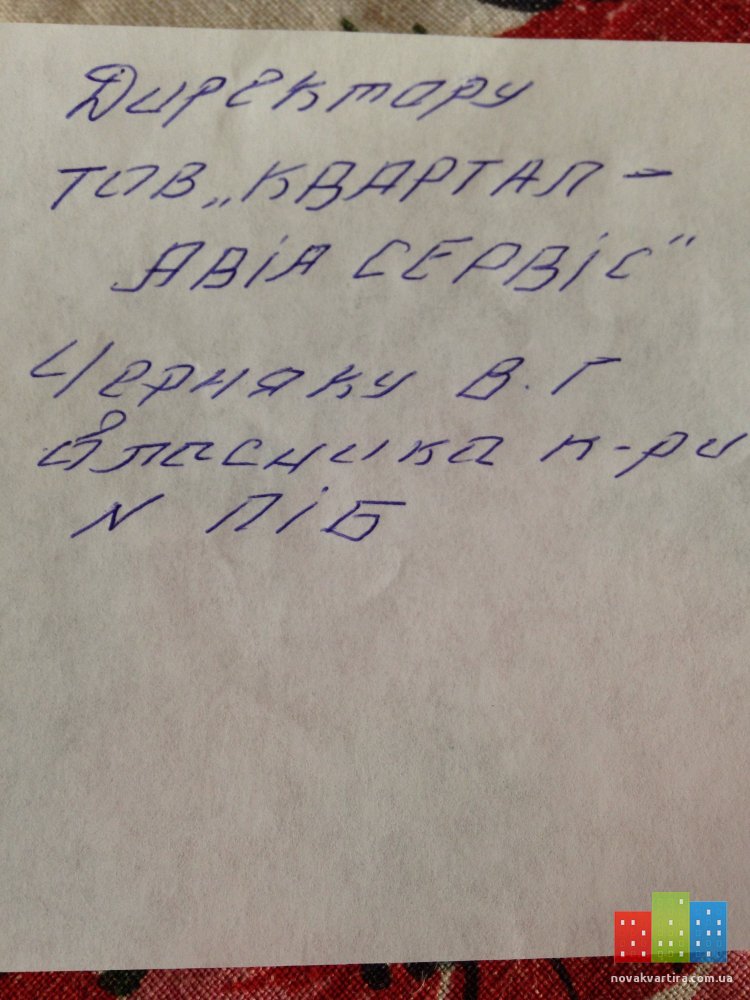 Директору
ТОВ „КВАРТАЛ-
АВІА СЕРВІС"
Черняку В. Г
власника к-ри
N ПІБ
novakvartira.com.ua